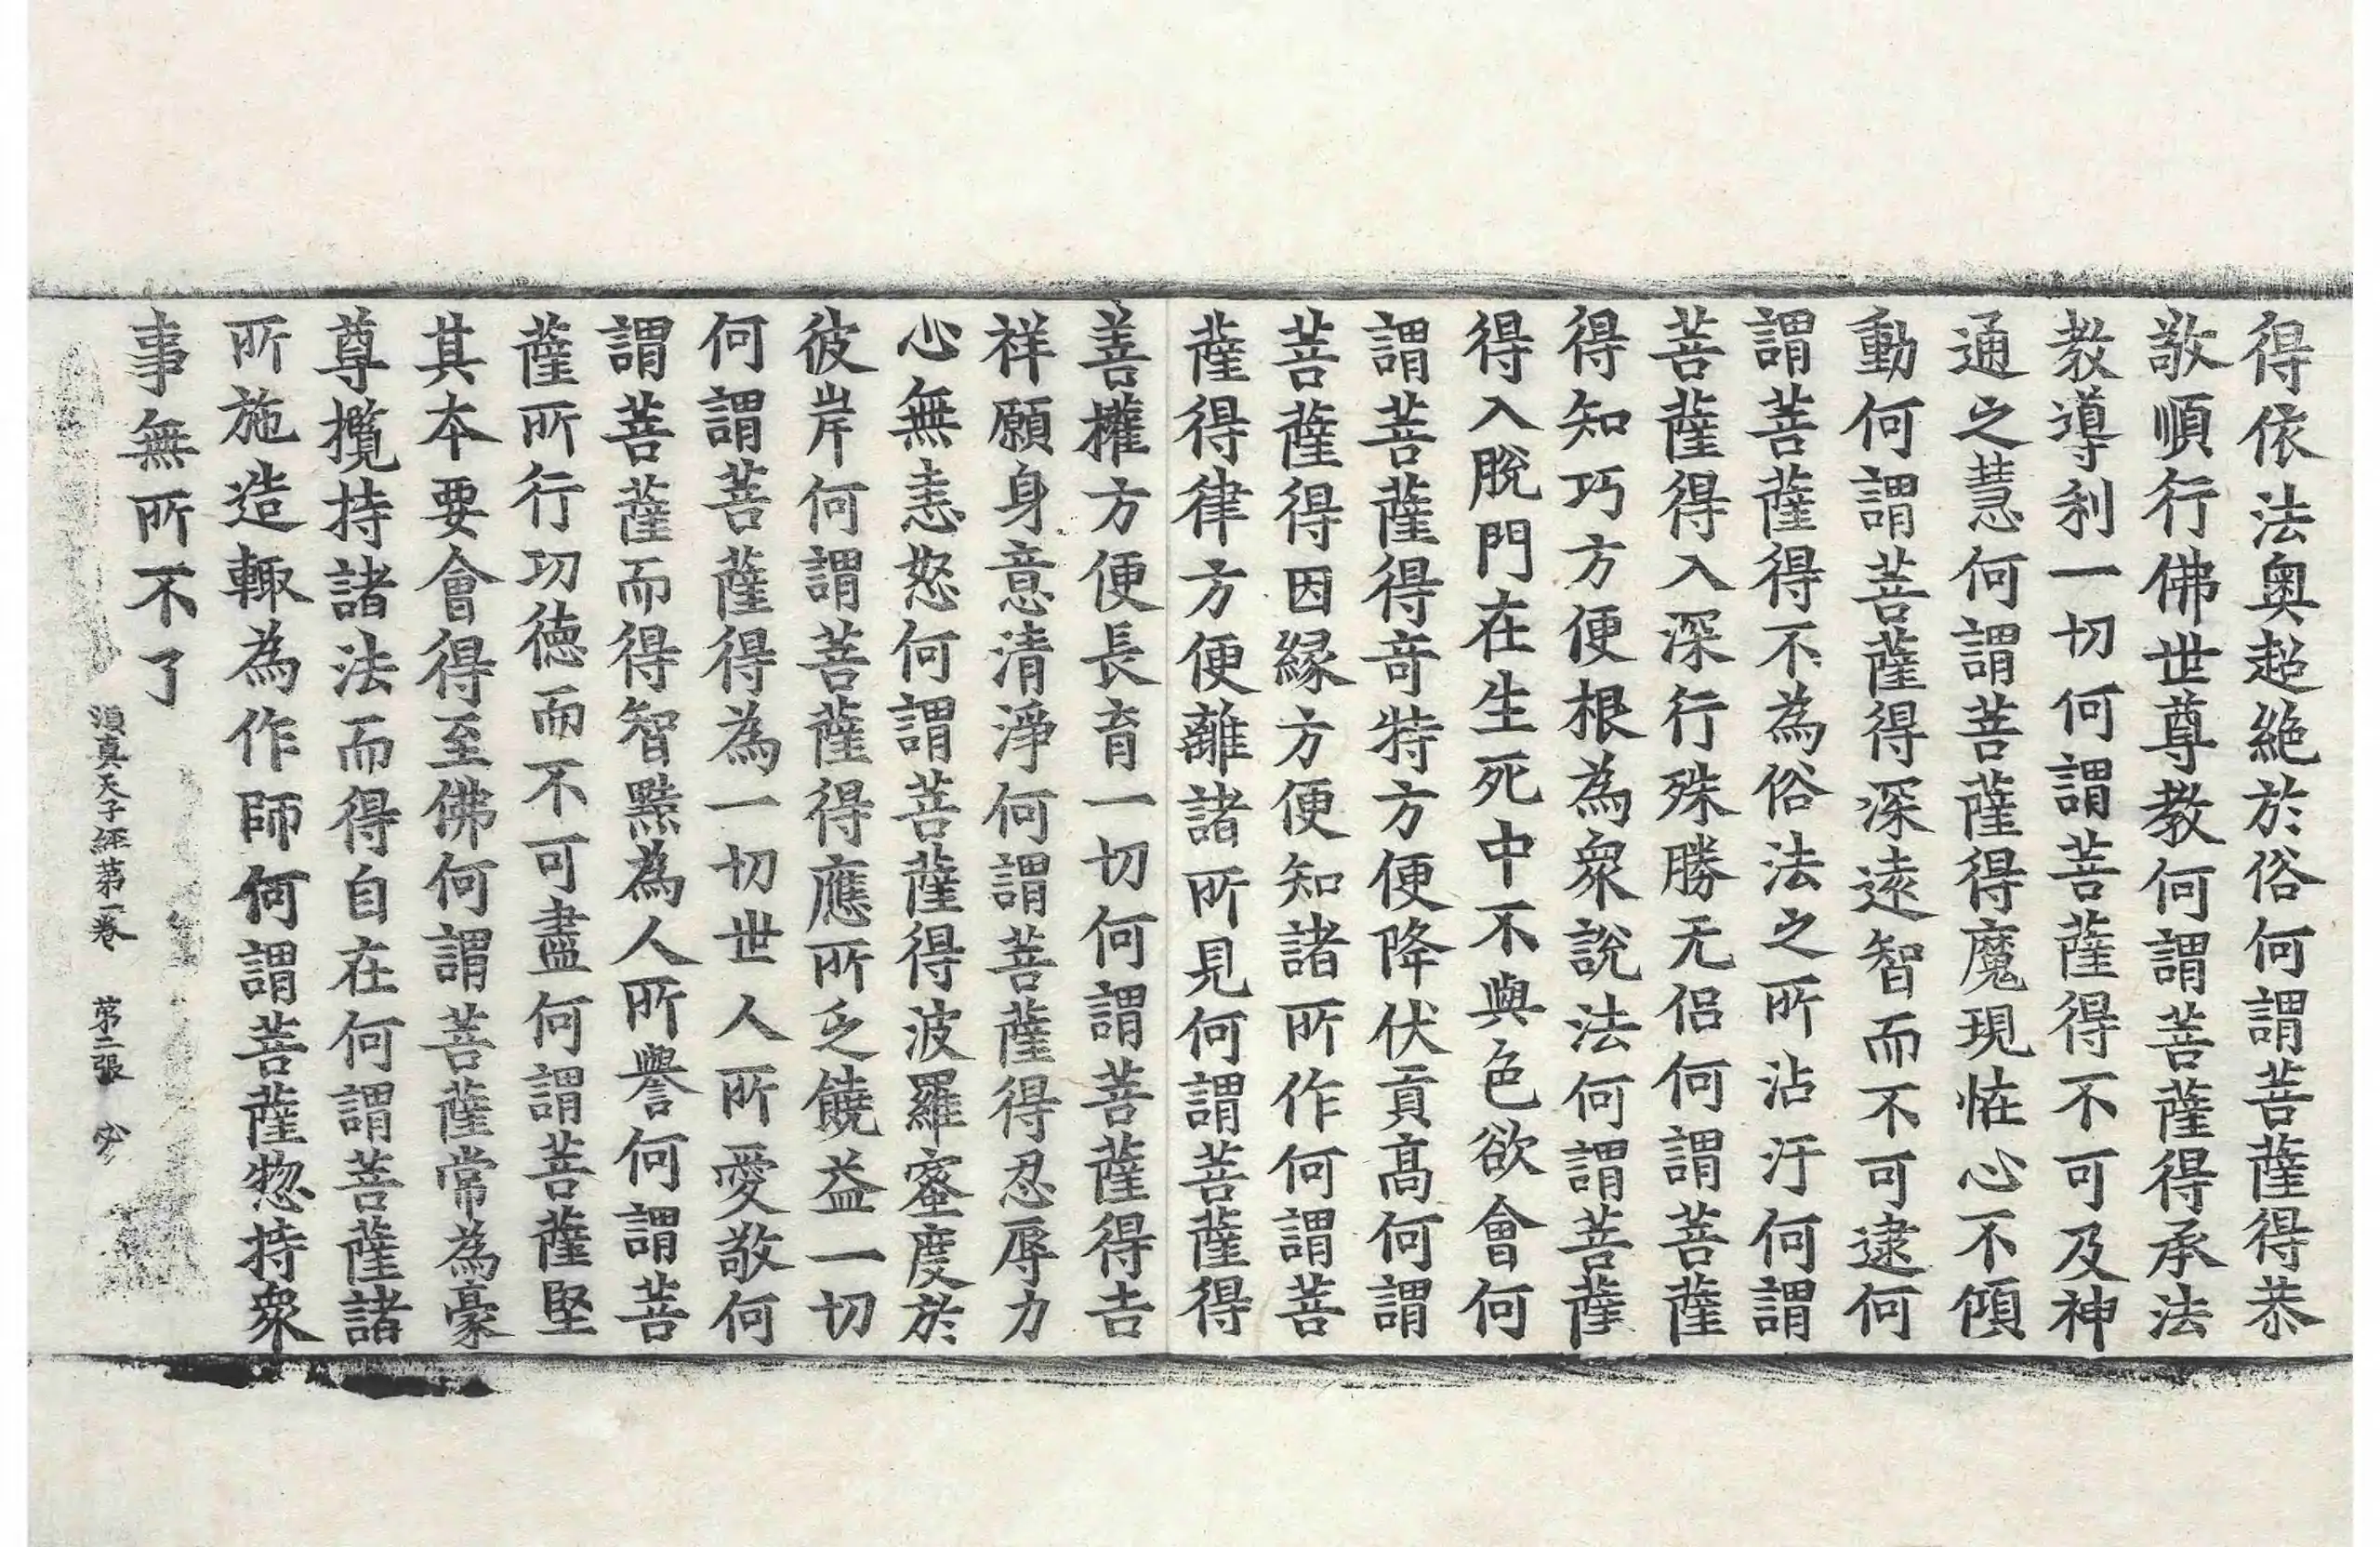 得依法奧超絕於俗何謂菩薩得恭
敬順行佛世尊教何謂菩薩得承法
教導利一切何謂菩薩得不可及神
通之慧何謂菩薩得魔現恠心不傾
動何謂菩薩得深遠智而不可逮何
謂菩薩得不為俗法之所沾汙何謂
菩薩得入深行殊勝无侶何謂菩薩
得知巧方便根為衆說法何謂菩薩
得入脫門在生死中不與色欲會何
謂菩薩得竒特方便降伏貢高何謂
菩薩得因緣方便知諸所作何謂菩
薩得律方便離諸所見何謂菩薩得
善權方便長育一切何謂菩薩得吉
祥願身意清淨何謂菩薩得忍辱力
心無恚怒何謂菩薩得波羅蜜度於
彼岸何謂菩薩得應所乏饒益一切
何謂菩薩得為一切世人所愛敬何
謂菩薩而得智黠為人所譽何謂菩
薩所行功德而不可盡何謂菩薩堅
其本要會得至佛何謂菩薩常為豪
尊攬持諸法而得自在何謂菩薩諸
所施造輙為作師何謂菩薩惣持衆
事無所不了
須真天子經第一卷 第二張 必